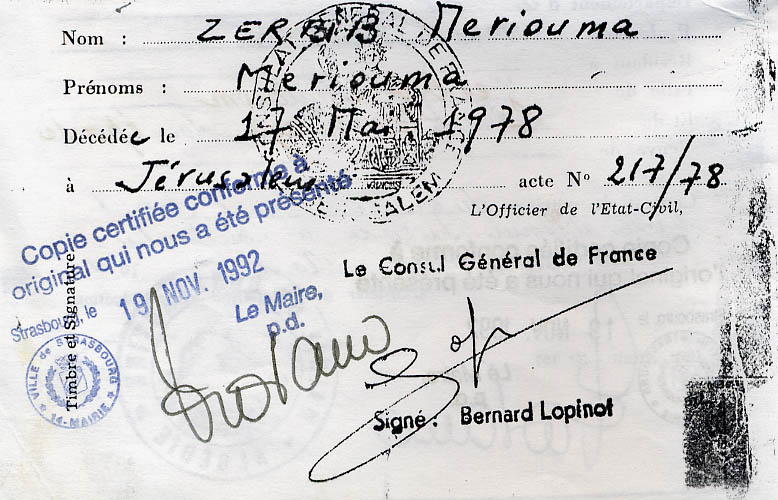 Nom : ZERBIB Meriouma
Prénoms : Meriouma
Décédée le 17 Mai 1978
à Jérusalem acte N° 217/78
L'Officier de l'Etat-Civil,
Copie certifiée conforme à
original qui nous a été présenté
Strasbourg, le 19 NOV. 1992
Le Maire,
p.d.
Timbre et Signature
VILLE de STRASBOURG
14-MAIRIE
Le Consul Général de France
Signé : Bernard Lopinot